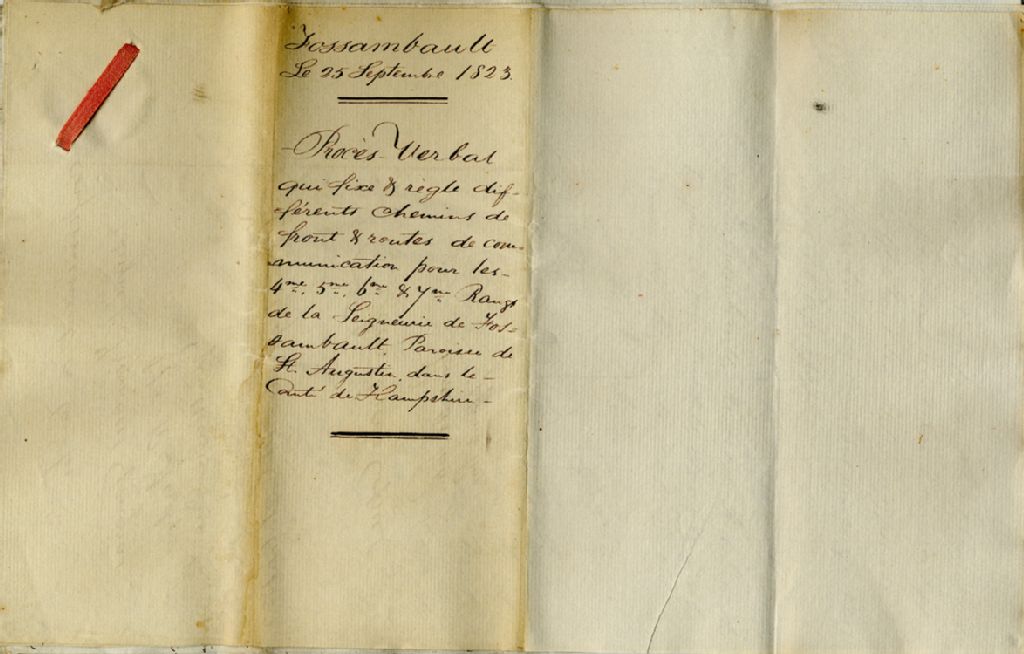 Fossambault
Le 25 Septembre 1823.
Procès-Verbal
qui fixe & règle dif-
férents chemins de
front & routes de com-
munication pour les
4me. 5me. 6me & 7me Rangs
de la Seigneurie de Fos-
sambault, Paroisse de
St. Augustin, dans le
Comté de Hampshire